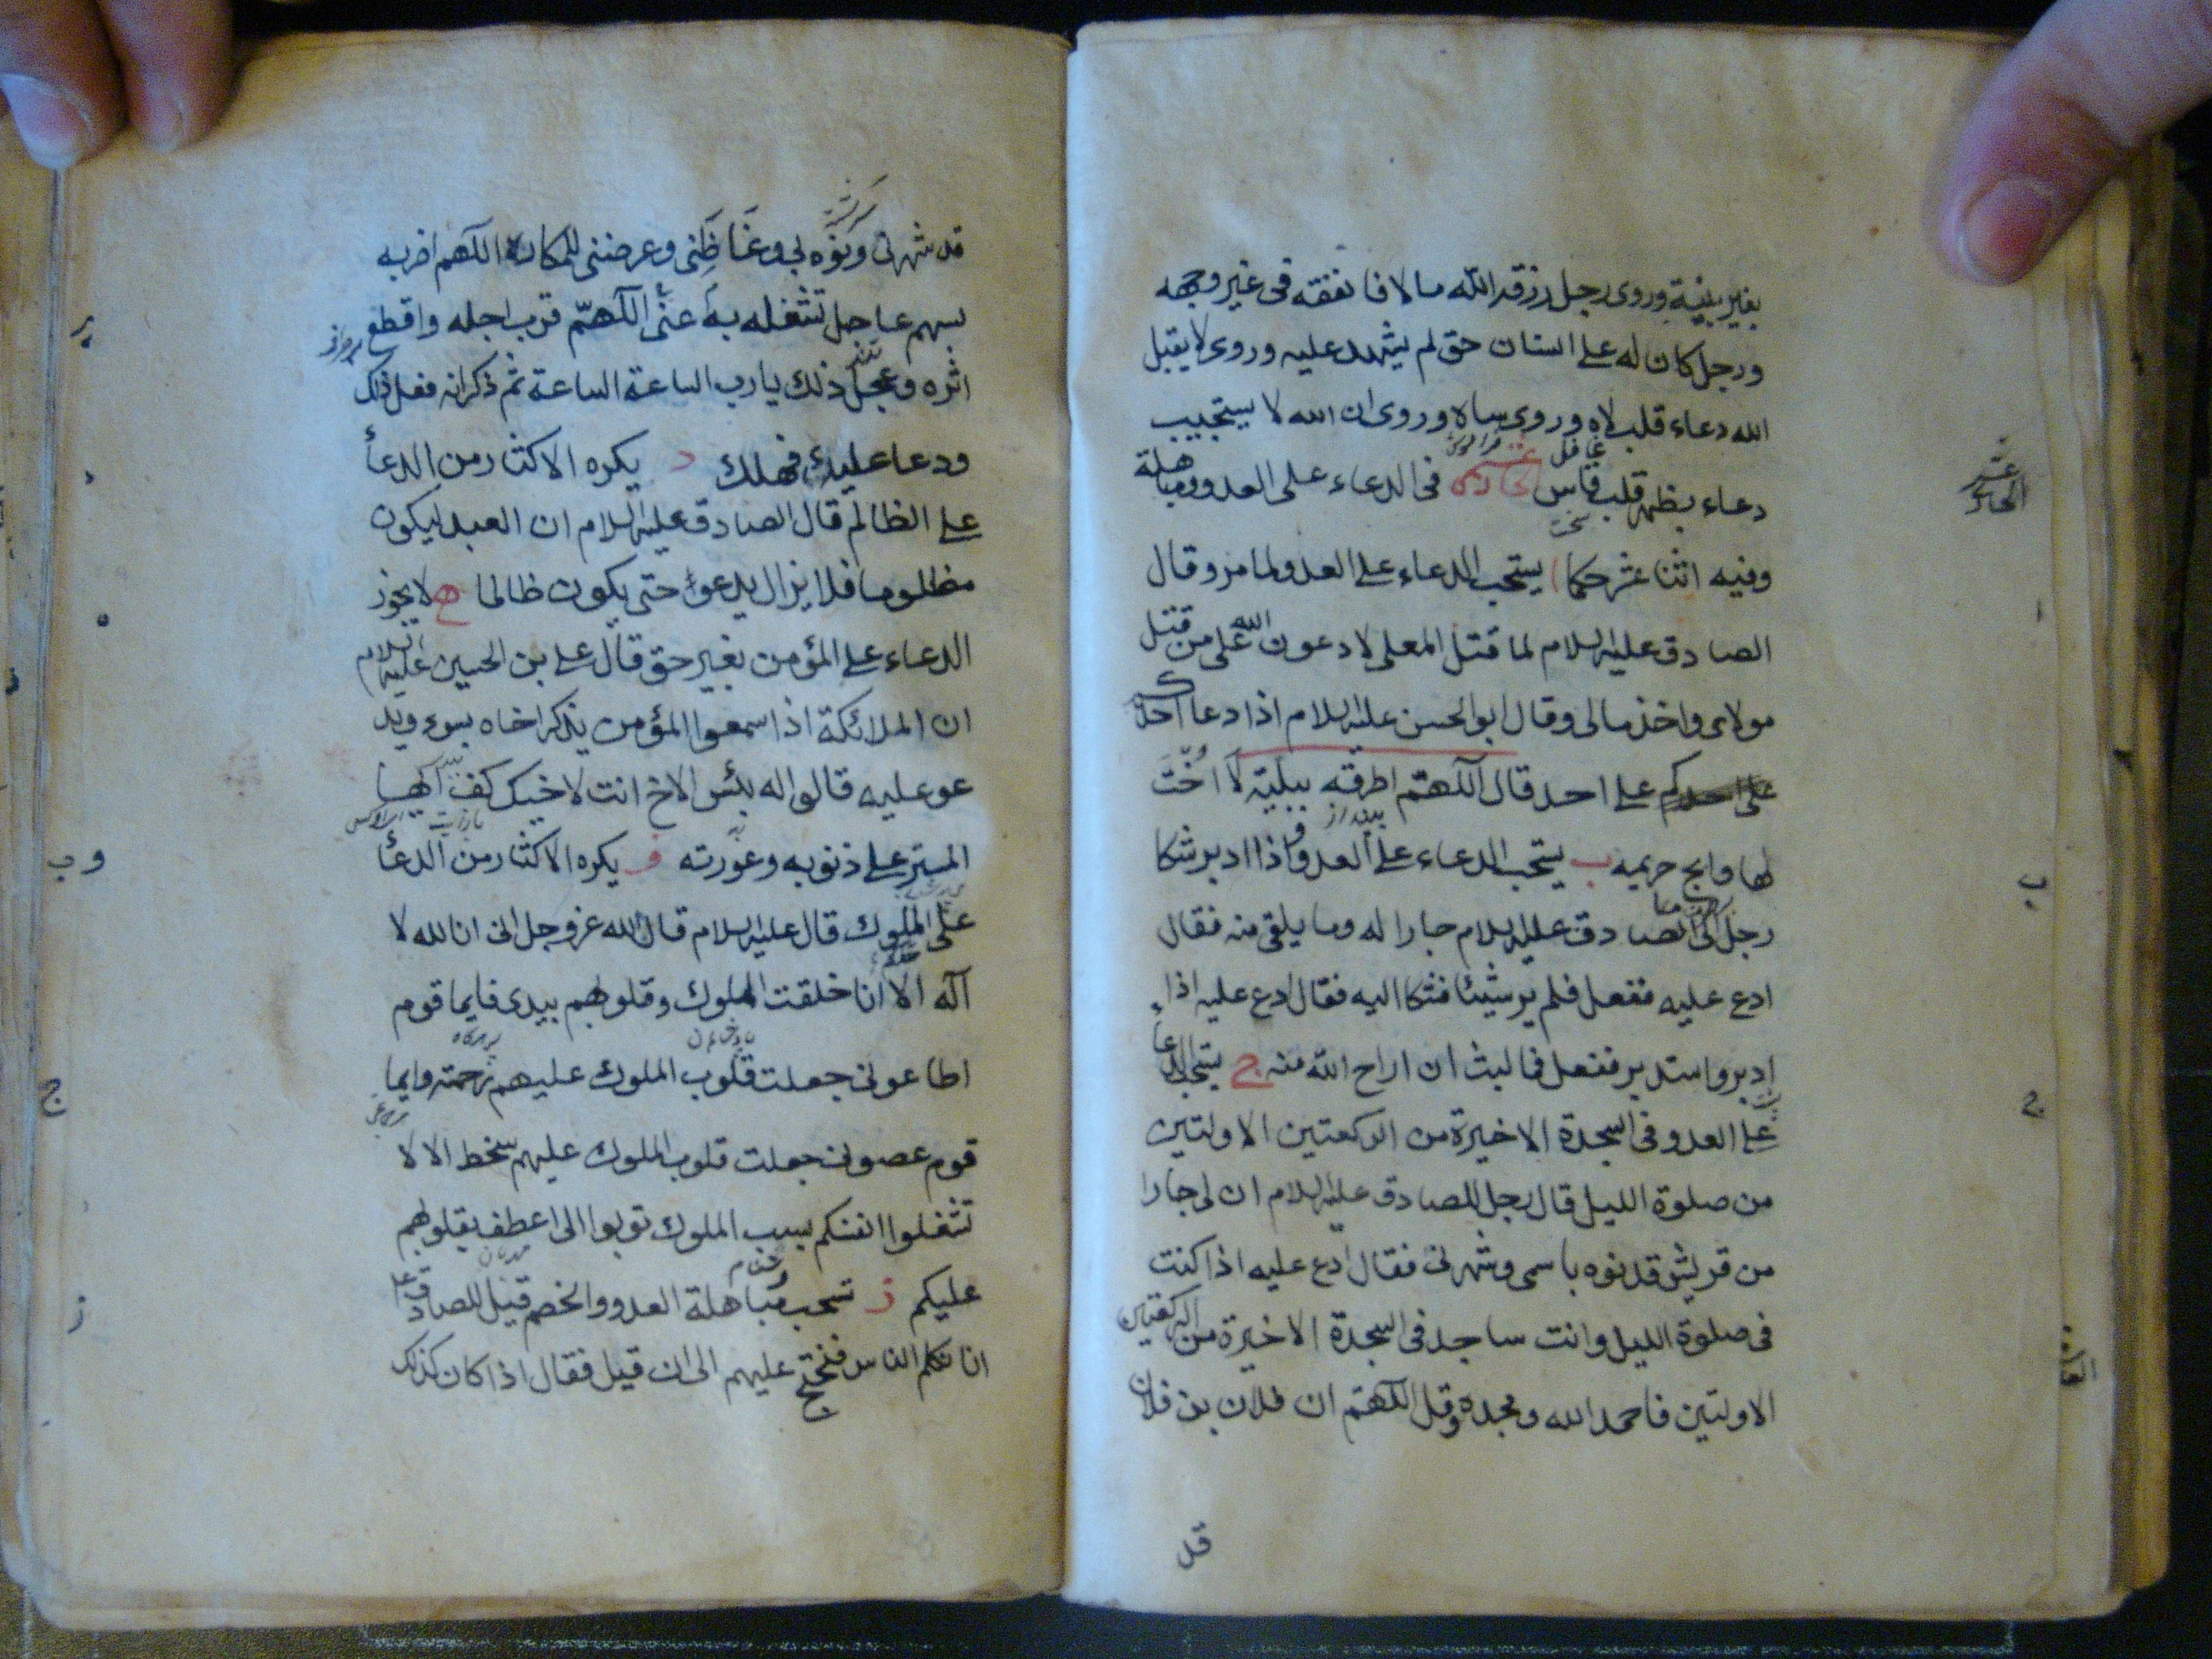 بغير بينة وروى رجل رزقه الله مالا فانفقه فى غير وجهه
ورجل كان له على انسان حق لم يشهد عليه وروى لا يقبل
الله دعاء قلب لاه وروى ساه وروى ان الله لا يستجيب
غافل
دعاء بظهر قلب قاس الحاديعشر فى الدعاء على العدو ومباهلة
سخت
وفيه اثنا عشر حكما ا يستحب الدعاء على العدو لما مر وقال
الصادق عليه السلام لما قتل المعلى لادعون الله على من قتل
مولاى واخذ مالى وقال ابو الحسن عليه السلام اذا دعا احدكم
على احد قال اللهم اطرقه ببلية لا اخت
لها وابح حريمه ب يستحب الدعاء على العدو اذا ادبر شكا
رجل الى الصادق عليه السلام جارا له وما يلقى منه فقال
ادع عليه ففعل فلم ير شيئا فشكا اليه فقال ادع عليه اذا
ادبر واستدبر ففعل فما لبث ان اراح الله منه ج يستحب الدعاء
على العدو فى السجدة الاخيرة من الركعتين الاولتين
من صلوة الليل قال رجل للصادق عليه السلام ان لى جارا
من قريش قد نوه باسمى وشهرنى فقال ادع عليه اذا كنت
فى صلوة الليل وانت ساجد فى السجدة الاخيرة من الركعتين
الاولتين فاحمد الله ومجده وقل اللهم ان فلان بن فلان
قد
عشر
الحادى
ا
ب
ج
قد شهرنى ونوه بى وغاظنى وعرضنى للمكاره اللهم اضربه
بسهم عاجل تشغله به عنى اللهم قرب اجله واقطع
اثره وعجل ذلك يا رب الساعة الساعة ثم ذكر انه فعل ذلك
ودعا عليه فهلك د يكره الاكثار من الدعأ
على الظالم قال الصادق عليه السلام ان العبد ليكون
مظلوما فلا يزال يدعو حتى يكون ظالما ه لا يجوز
الدعاء على المؤمن بغير حق قال على بن الحسين عليه السلام
ان الملائكة اذا سمعوا المؤمن يذكر اخاه بسوء ويد
عو عليه قالوا له بئس الاخ انت لاخيك كف ايها
المستر على ذنوبه وعورته و يكره الاكثار من الدعأ
على الملوك قال عليه السلام قال الله عز وجل انى انا الله لا
اله الا انا خلقت الملوك وقلوبهم بيدى فايما قوم
اطاعونى جعلت قلوب الملوك عليهم رحمة وايما
قوم عصونى جعلت قلوب الملوك عليهم سخط الا لا
تشغلوا انفسكم بسبب الملوك توبوا الى اعطف بقلوبهم
مهربان
عليكم ز تستحب مباهلة العدو والخصم قيل للصادق ع
انا نكلم الناس فنحتج عليهم الى ان قيل فقال اذا كان كذلك
د
ه
و
ج
ز